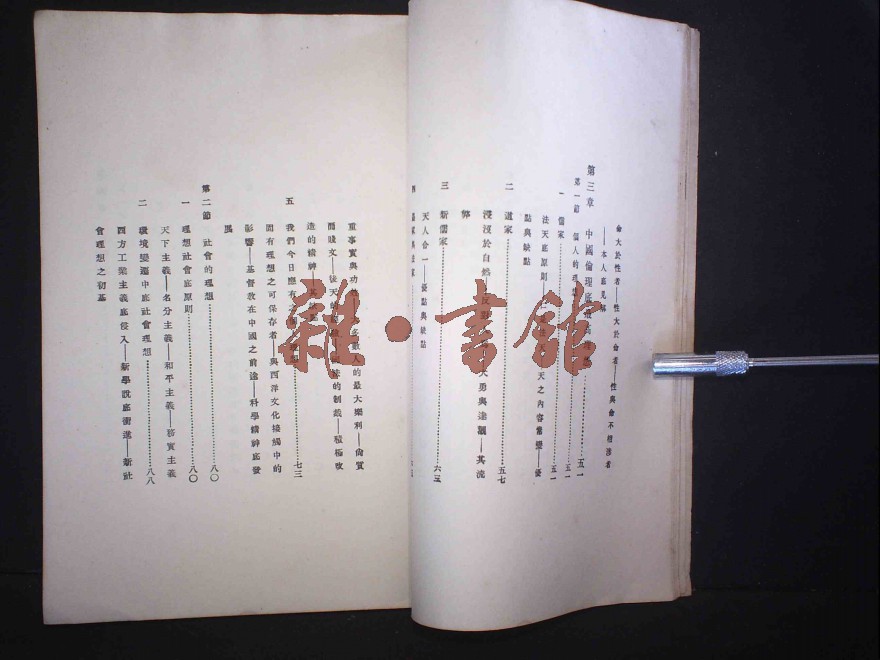 命大於性者——性大於命者——性與命不相涉者
——本人底見解
第三章 中國倫理底
第一節 個人的理想 五一
一 儒家 五一
法天底原則 天之內容嬗變——優
點與缺點
二 道家 五七
浸淫於自然 大勇與達觀——其流
弊
三 新儒家 六五
天人合一——優點與缺點
四
重事實與功 數人的最大樂利——尚質
而賤文——後天的 的制裁——積極改
造的精神
五 我們今日應有之 七三
固有理想之可保存者——與西洋文化接觸中的
影響——基督教在中國之前途——科學精神底發
展
第二節 社會的理想 八〇
一 理想社會底原則 八〇
天下主義——名分主義——和平主義——務實主義
二 環境變遷中底社會理想 八八
西方工業主義底侵入——新學說底衝進——新社
會理想之初基
雜·書館